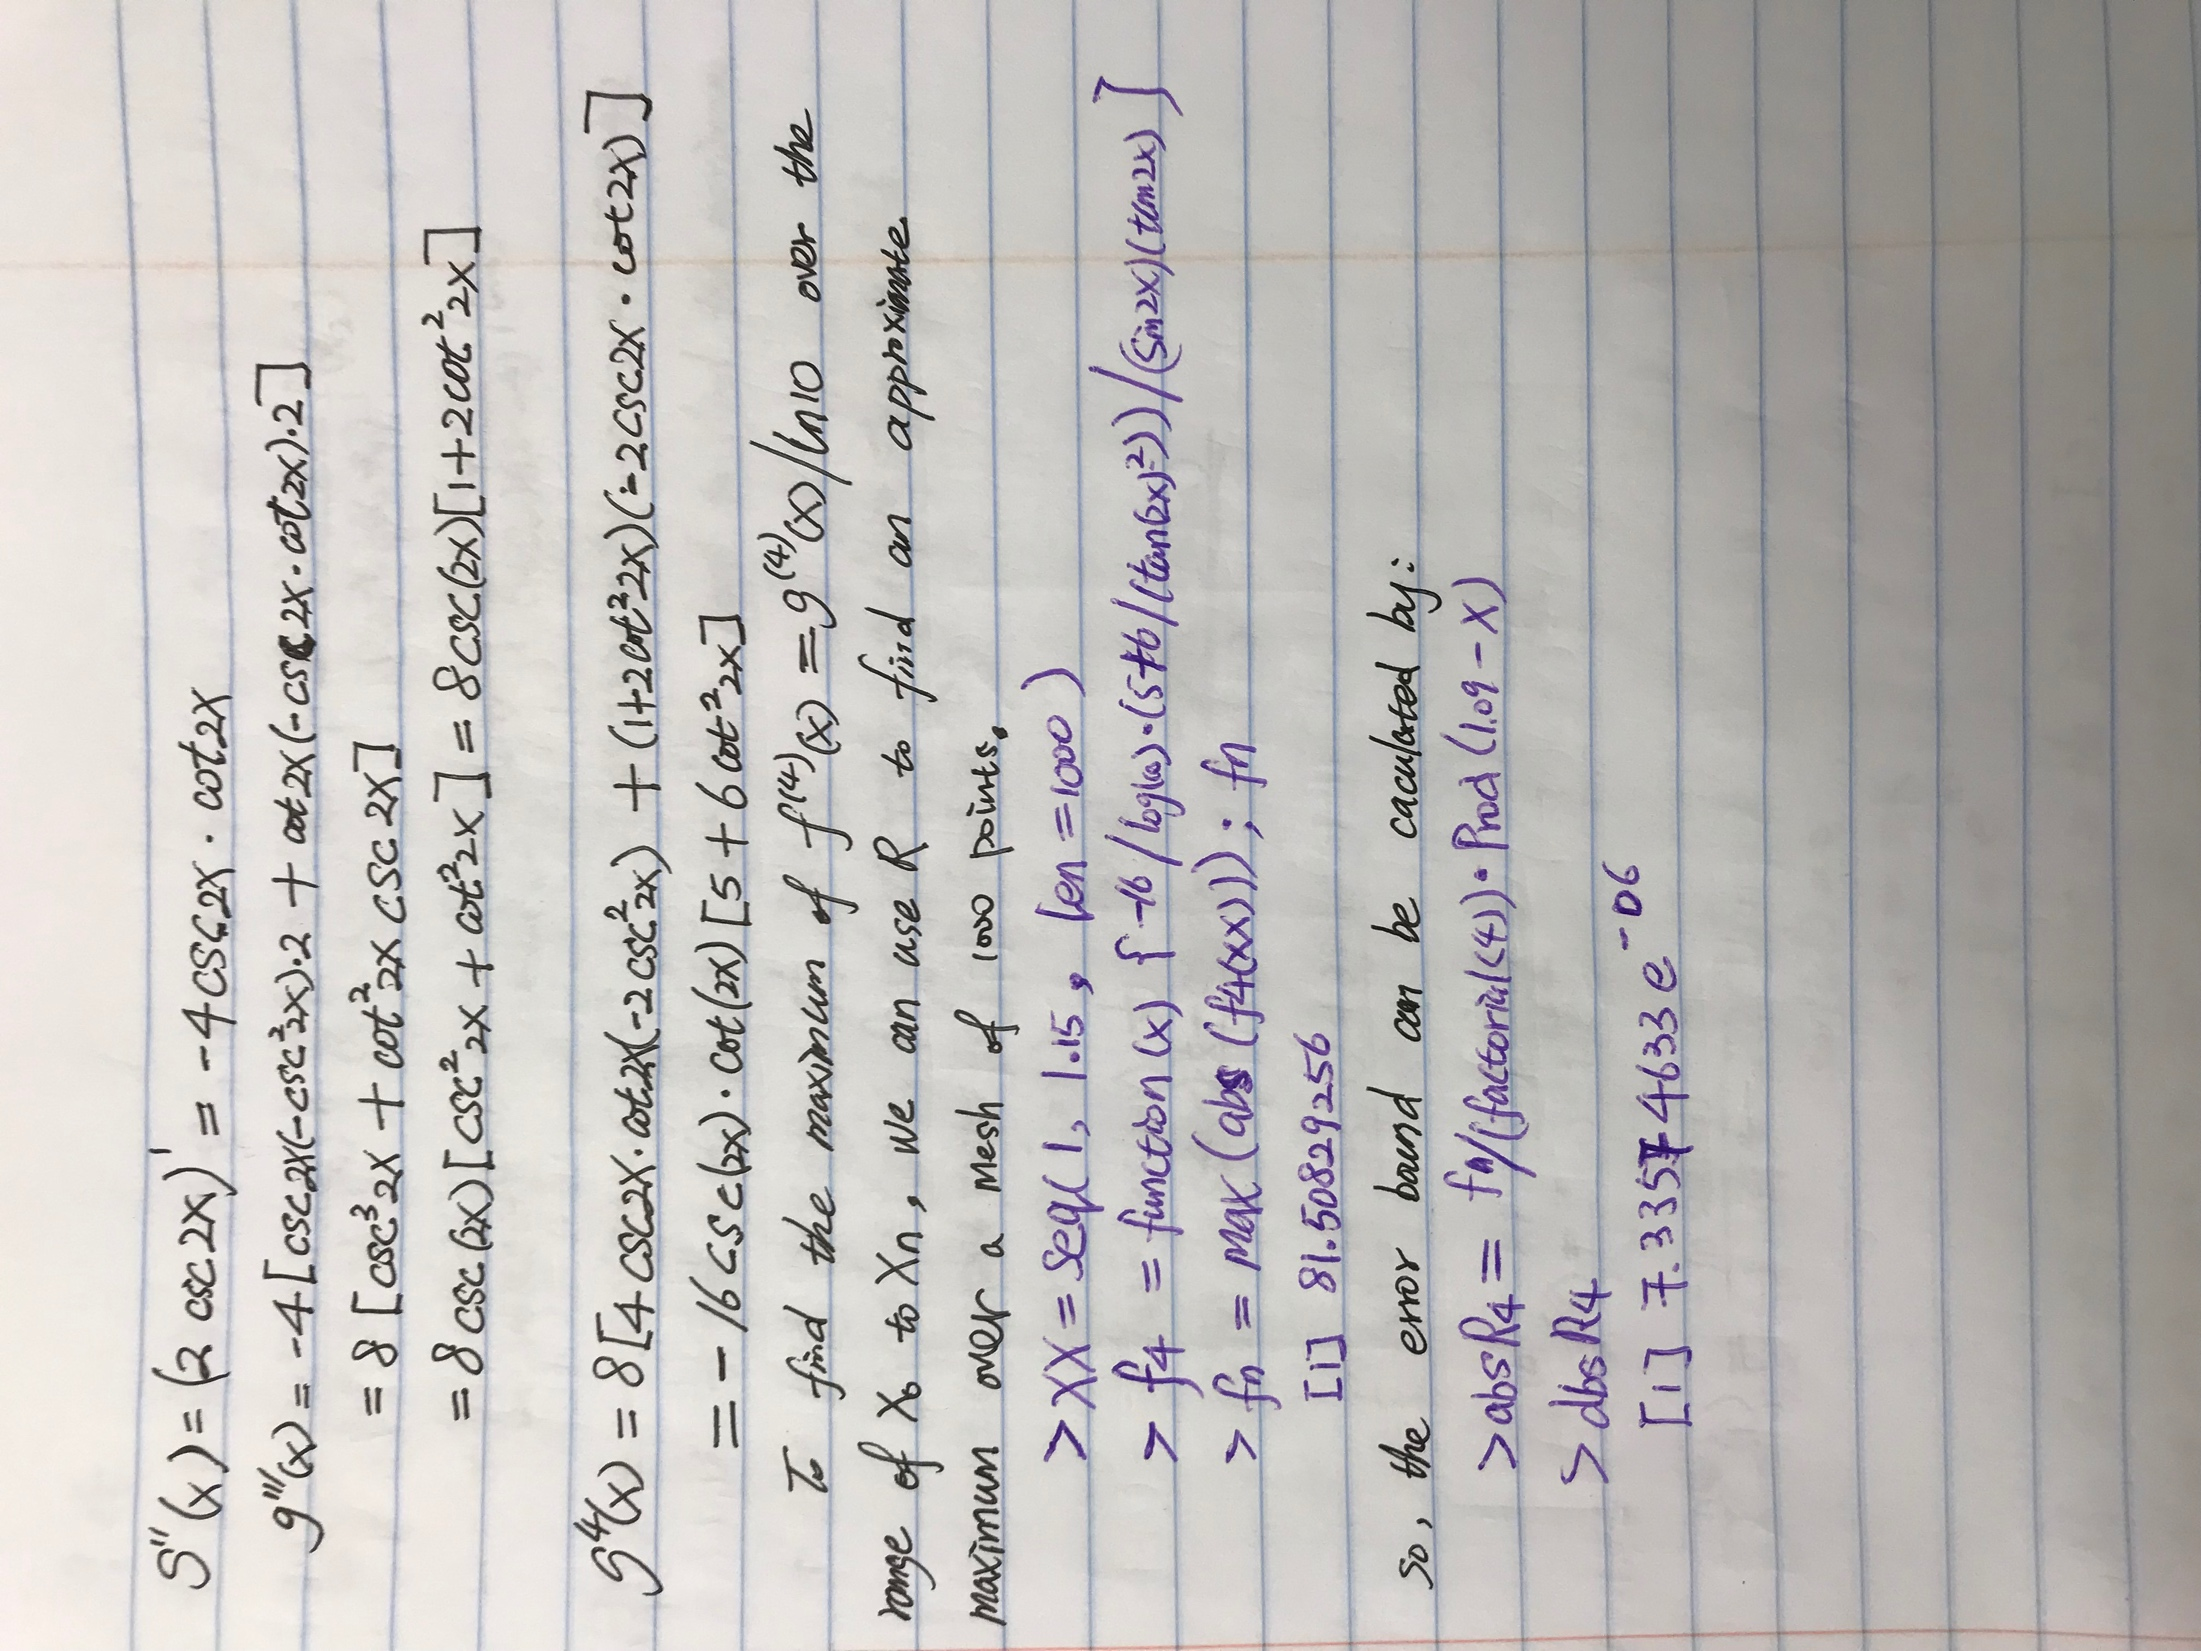 g''(x) = (2 csc 2x)' = -4 csc 2x · cot 2x
g'''(x) = -4[csc 2x(-csc²2x)·2 + cot 2x(-csc 2x · cot 2x)·2]
= 8[csc³2x + cot²2x csc 2x]
= 8 csc(2x)[csc²2x + cot²2x] = 8 csc(2x)[1+2cot²2x]
g⁴(x) = 8[4 csc 2x · cot 2x(-2csc²2x) + (1+2cot²2x)(-2csc2x · cot 2x)]
= -16 csc(2x) · cot(2x)[5 + 6 cot²2x]
To find the maximum of f⁽⁴⁾(x) = g⁽⁴⁾(x)/ln10 over the
range of X₀ to Xn, we can use R to find an approximate
maximum over a mesh of 1000 points.
> XX = seq(1, 1.15, len=1000)
> f4 = function(x) {-16/log(10)·(5+6/(tan(2x)²))/(sin2x)(tan2x)]
> fn = max(abs(f4(xx))); fn
[1] 81.50829256
so, the error bound can be caculated by:
> absR4 = fn/(factorial(4))· Prod(1.09-x)
> absR4
[1] 7.33574633e⁻⁰⁶